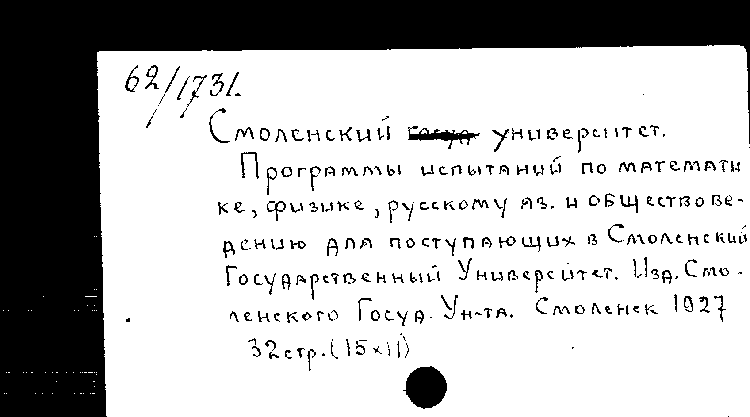 62/1731.
Смоленский университет.
Программы испытаний по математи
ке, физике, русскому яз. и обществове-
дению для поступающих в Смоленский
Государственный Университет. Изд. Смо-
ленского Госуд. Ун-та. Смоленск 1927
32 стр. (15×11)